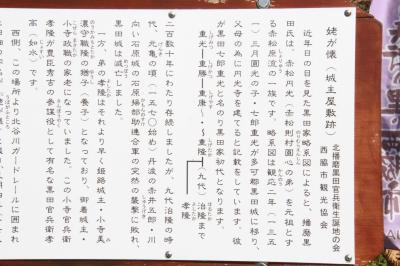 姥が懐(城主屋敷跡)
北播磨黒田官兵衛生誕地の会
西脇市観光協会
近年日の目を見た黒田家略系図によると、播磨黒
田氏は、赤松円光(赤松則村円心の弟)を元祖とす
る赤松庶流の一族です。略系図は観応二年(一三五
一)三月円光の子・七郎重光が多可郡黒田城に移り、
父母の為に円光寺を建てると記載をています。彼
が黒田七郎重光と名のり黒田家初代となります。
重光―重勝―重康~・~重隆―(九代)治隆まで
孝隆
二百数十年にわたり存続しましたが、九代治隆の時
代、元亀の頃(一五七〇始め)丹波の赤井五郎・川
向い石原城の石原掃部助連合軍の突然の襲撃に敗れ、
黒田城は滅亡しました。
一方、弟の孝隆はそれより早く姫路城主・小寺美
濃守職隆の猶子(養子)となっており、御着城主・
小寺政職の家老になっていました。この小寺官兵衛
孝隆が豊臣秀吉の参謀役として有名な黒田官兵衛孝
高(如水)です。
西側、この場所より北谷川ガードレールに囲まれ